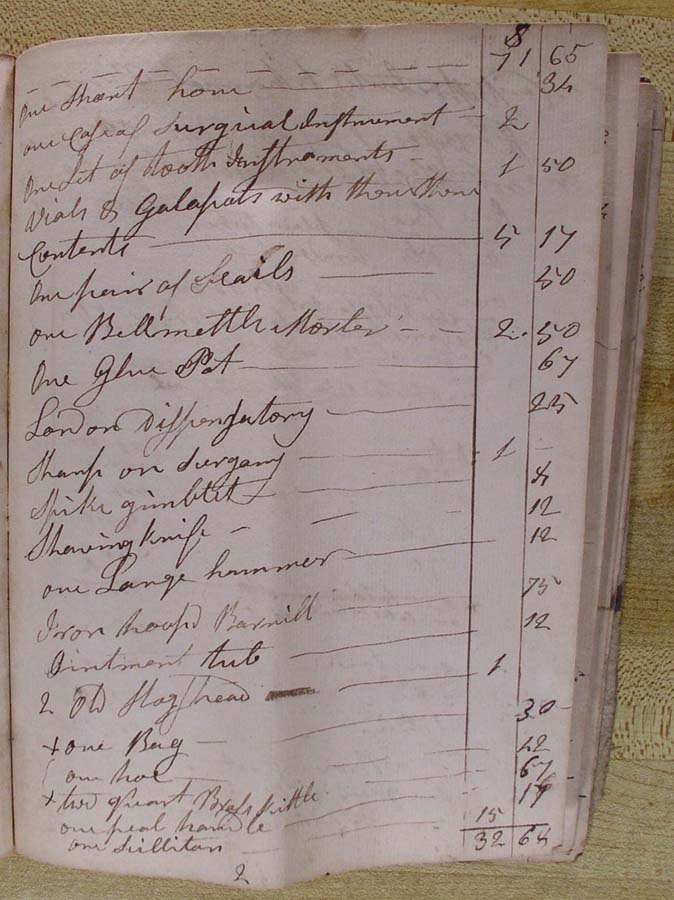 8
71 65
One Short hone 34
one Case of Surgical Instrument 2
One Set of tooth Instraments 1 50
Vials & Galapots with
Contents 5 17
One pair of Scails 50
one Bell mettle Morter 2 50
One Glue Pot 67
London Dispensatory 25
Sharp on Surgany 1
Spike gimblet 8
Shaving knife 12
one Large hammer 12
Iron hoopd Barrill 75
Ointment tub 12
2 Old Hogshead 1
+ one Bag 30
one hoe 22
+ two quart Brass kittle 67
one peal handle 17
one 15
32 64
2